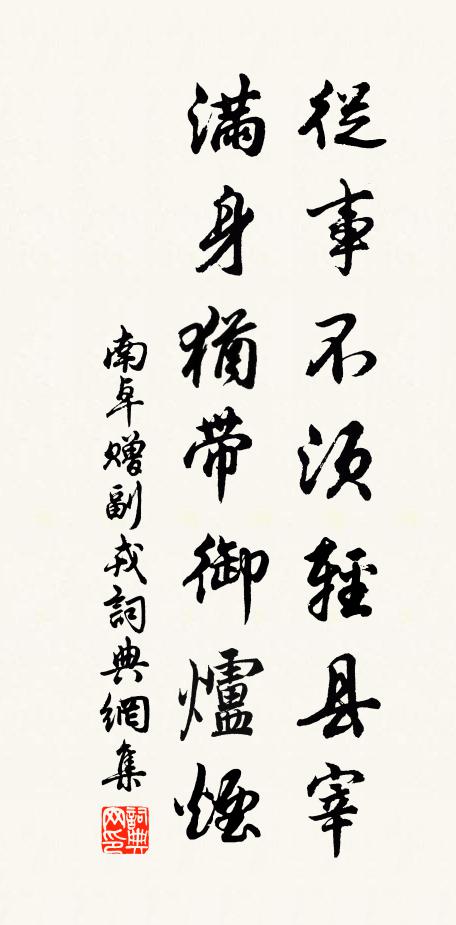 從事不須輕县宰
滿身猶帶御爐煙
南卓赠副戎詞典網集
詞典网印